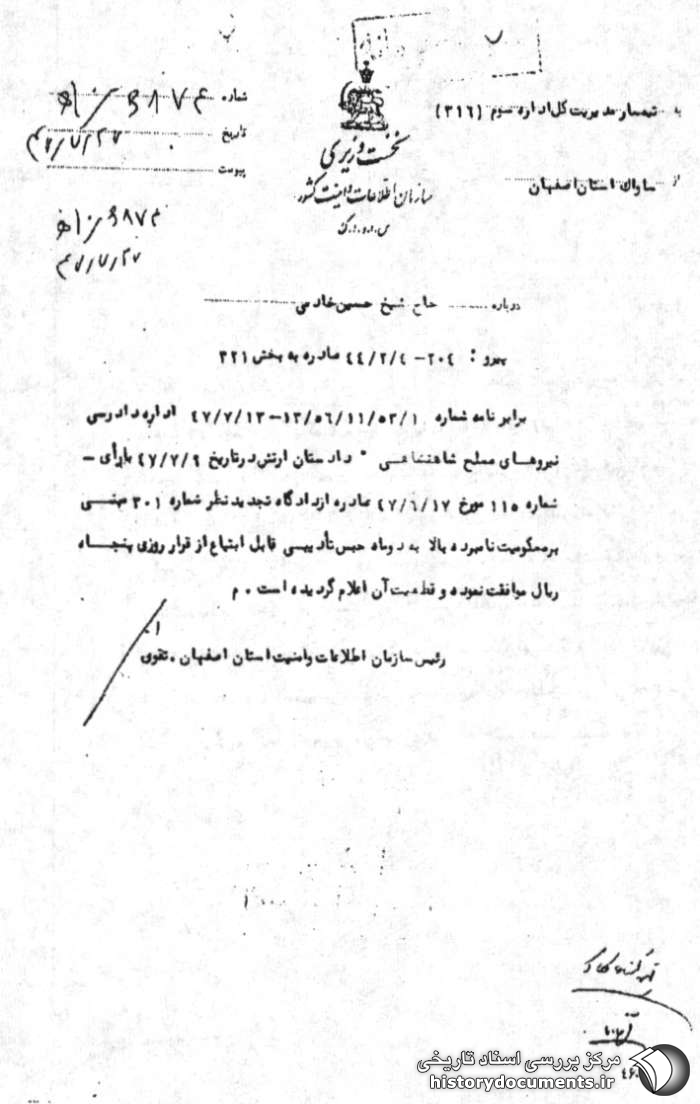 به تیمسار مدیریت کل اداره سوم (۳۱۶)
از ساواک استان اصفهان
نخست وزیری
سازمان اطلاعات و امنیت کشور
س.ا.و.ا.ک
شماره
تاریخ ۴۷/۷/۲۷
پیوست
۴۷/۷/۲۷
درباره حاج شیخ حسین خادمی
پیرو : ۲۰۴- ۴۴/۲/۴ صادره به بخش ۳۲۱
برابر نامه شماره ۴۷/۷/۱۳-۱۳/۵۶/۱۱/۵۳/۱ اداره دادرسی
نیروهای مسلح شاهنشاهی " دادستان ارتش در تاریخ ۴۷/۷/۹ بارأی -
شماره ۱۱۵ مورخ ۴۷/۶/۱۷ صادره از دادگاه تجدید نظر شماره ۳۰۱ مبنی
بر محکومیت نامبرده بالا به دو ماه حبس تأدیبی قابل ابتیاع از قرار روزی پنجاه
ریال موافقت نموده و قطعیت آن اعلام گردیده است . م
رئیس سازمان اطلاعات وامنیت استان اصفهان . تقوی
مرکز بررسی اسناد تاریخی
historydocuments.ir